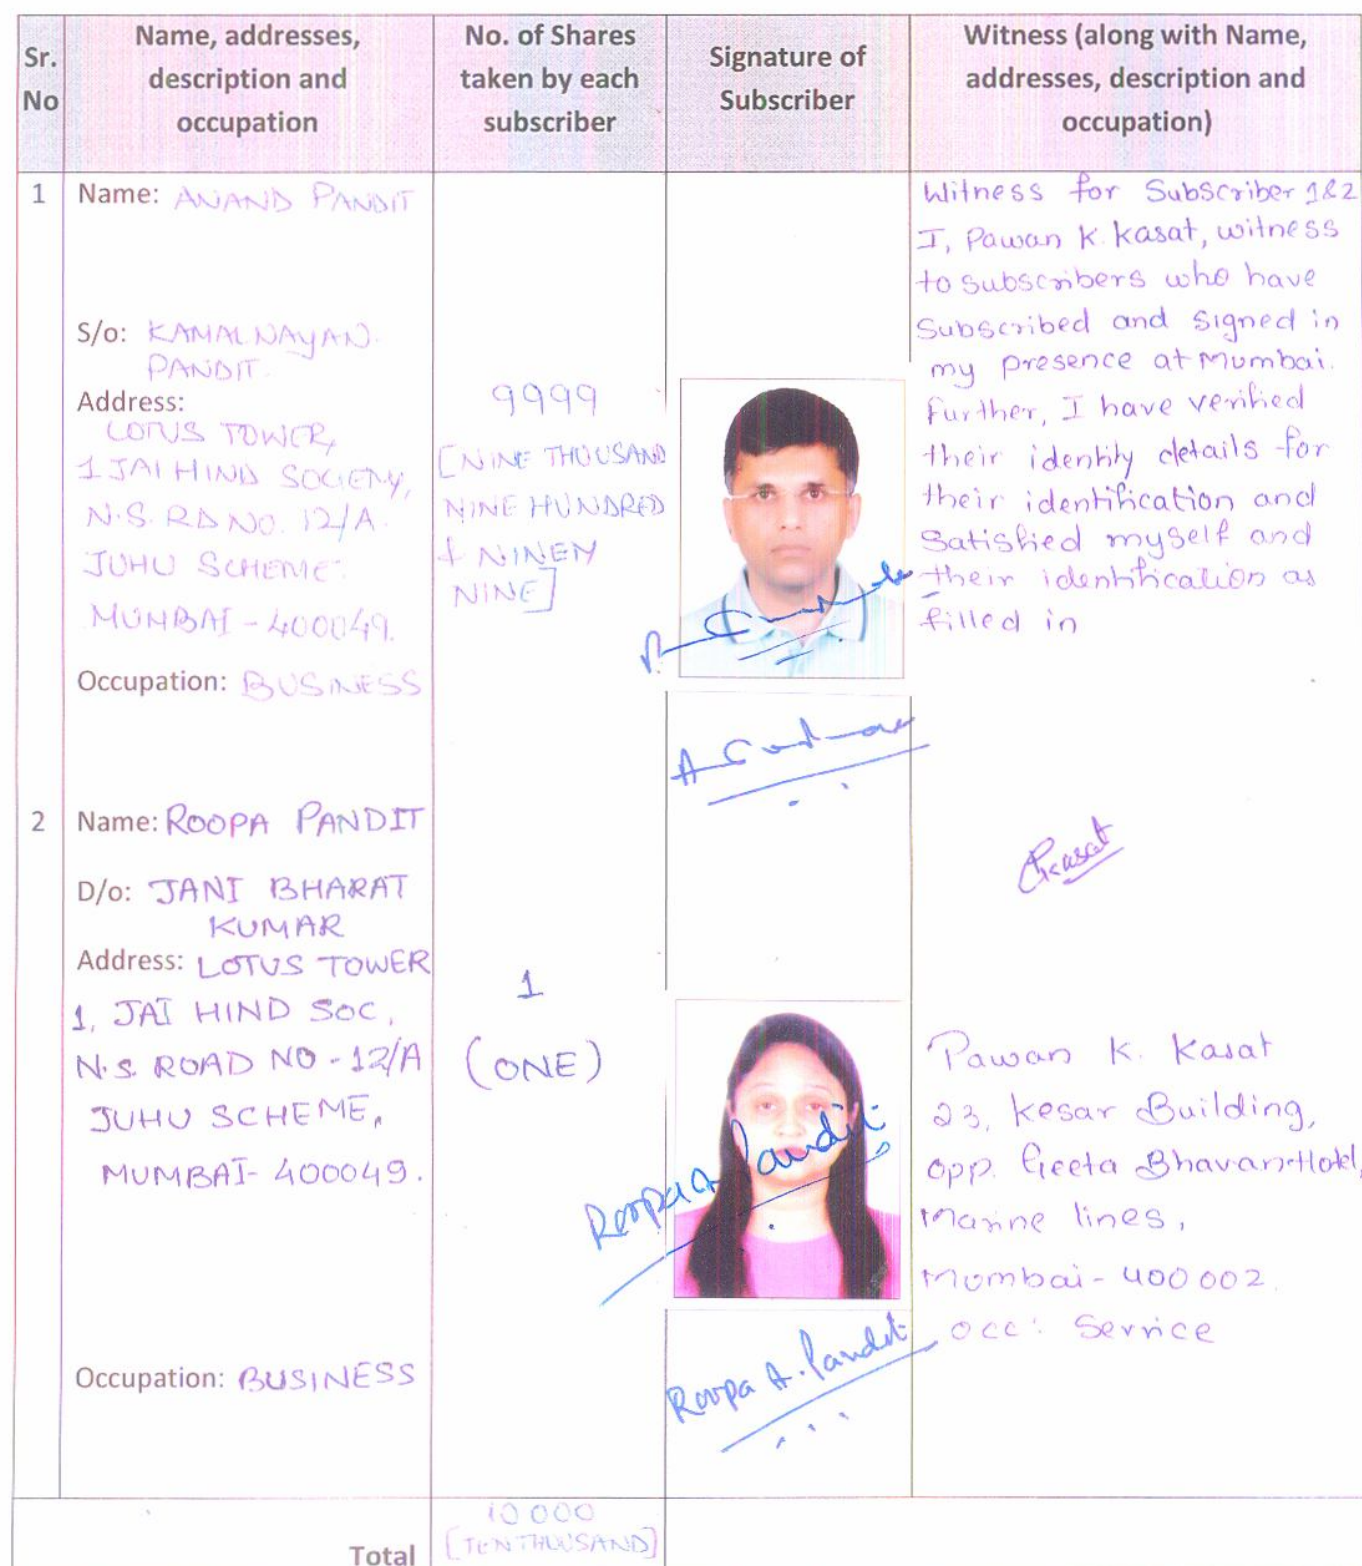 Sr. No
Name, addresses, description and occupation
No. of Shares taken by each subscriber
Signature of Subscriber
Witness (along with Name, addresses, description and occupation)
1
Name: ANAND PANDIT
S/o: KAMALNAYAN
PANDIT.
Address:
LOTUS TOWER,
1 JAI HIND SOCIETY,
N.S. RD NO. 12/A.
JUHU SCHEME.
MUMBAI - 400049.
Occupation: BUSINESS
9999
[NINE THOUSAND
NINE HUNDRED
& NINETY
NINE]
Witness for Subscriber 1&2
I, Pawan K. Kasat, witness
to subscribers who have
Subscribed and signed in
my presence at Mumbai.
Further, I have verified
their identity details for
their identification and
Satisfied myself and
their identification as
filled in
2
Name: ROOPA PANDIT
D/o: JANI BHARAT
KUMAR
Address: LOTUS TOWER
1, JAI HIND SOC,
N.S. ROAD NO - 12/A
JUHU SCHEME,
MUMBAI- 400049.
Occupation: BUSINESS
1
(ONE)
Roopa A. Pandit
Roopa A. Pandit
PKasat
Pawan K. Kasat
23, Kesar Building,
opp. Geeta Bhavan Hotel,
Marine lines,
Mumbai - 400 002.
occ: Service
Total
10 000
[TEN THOUSAND]